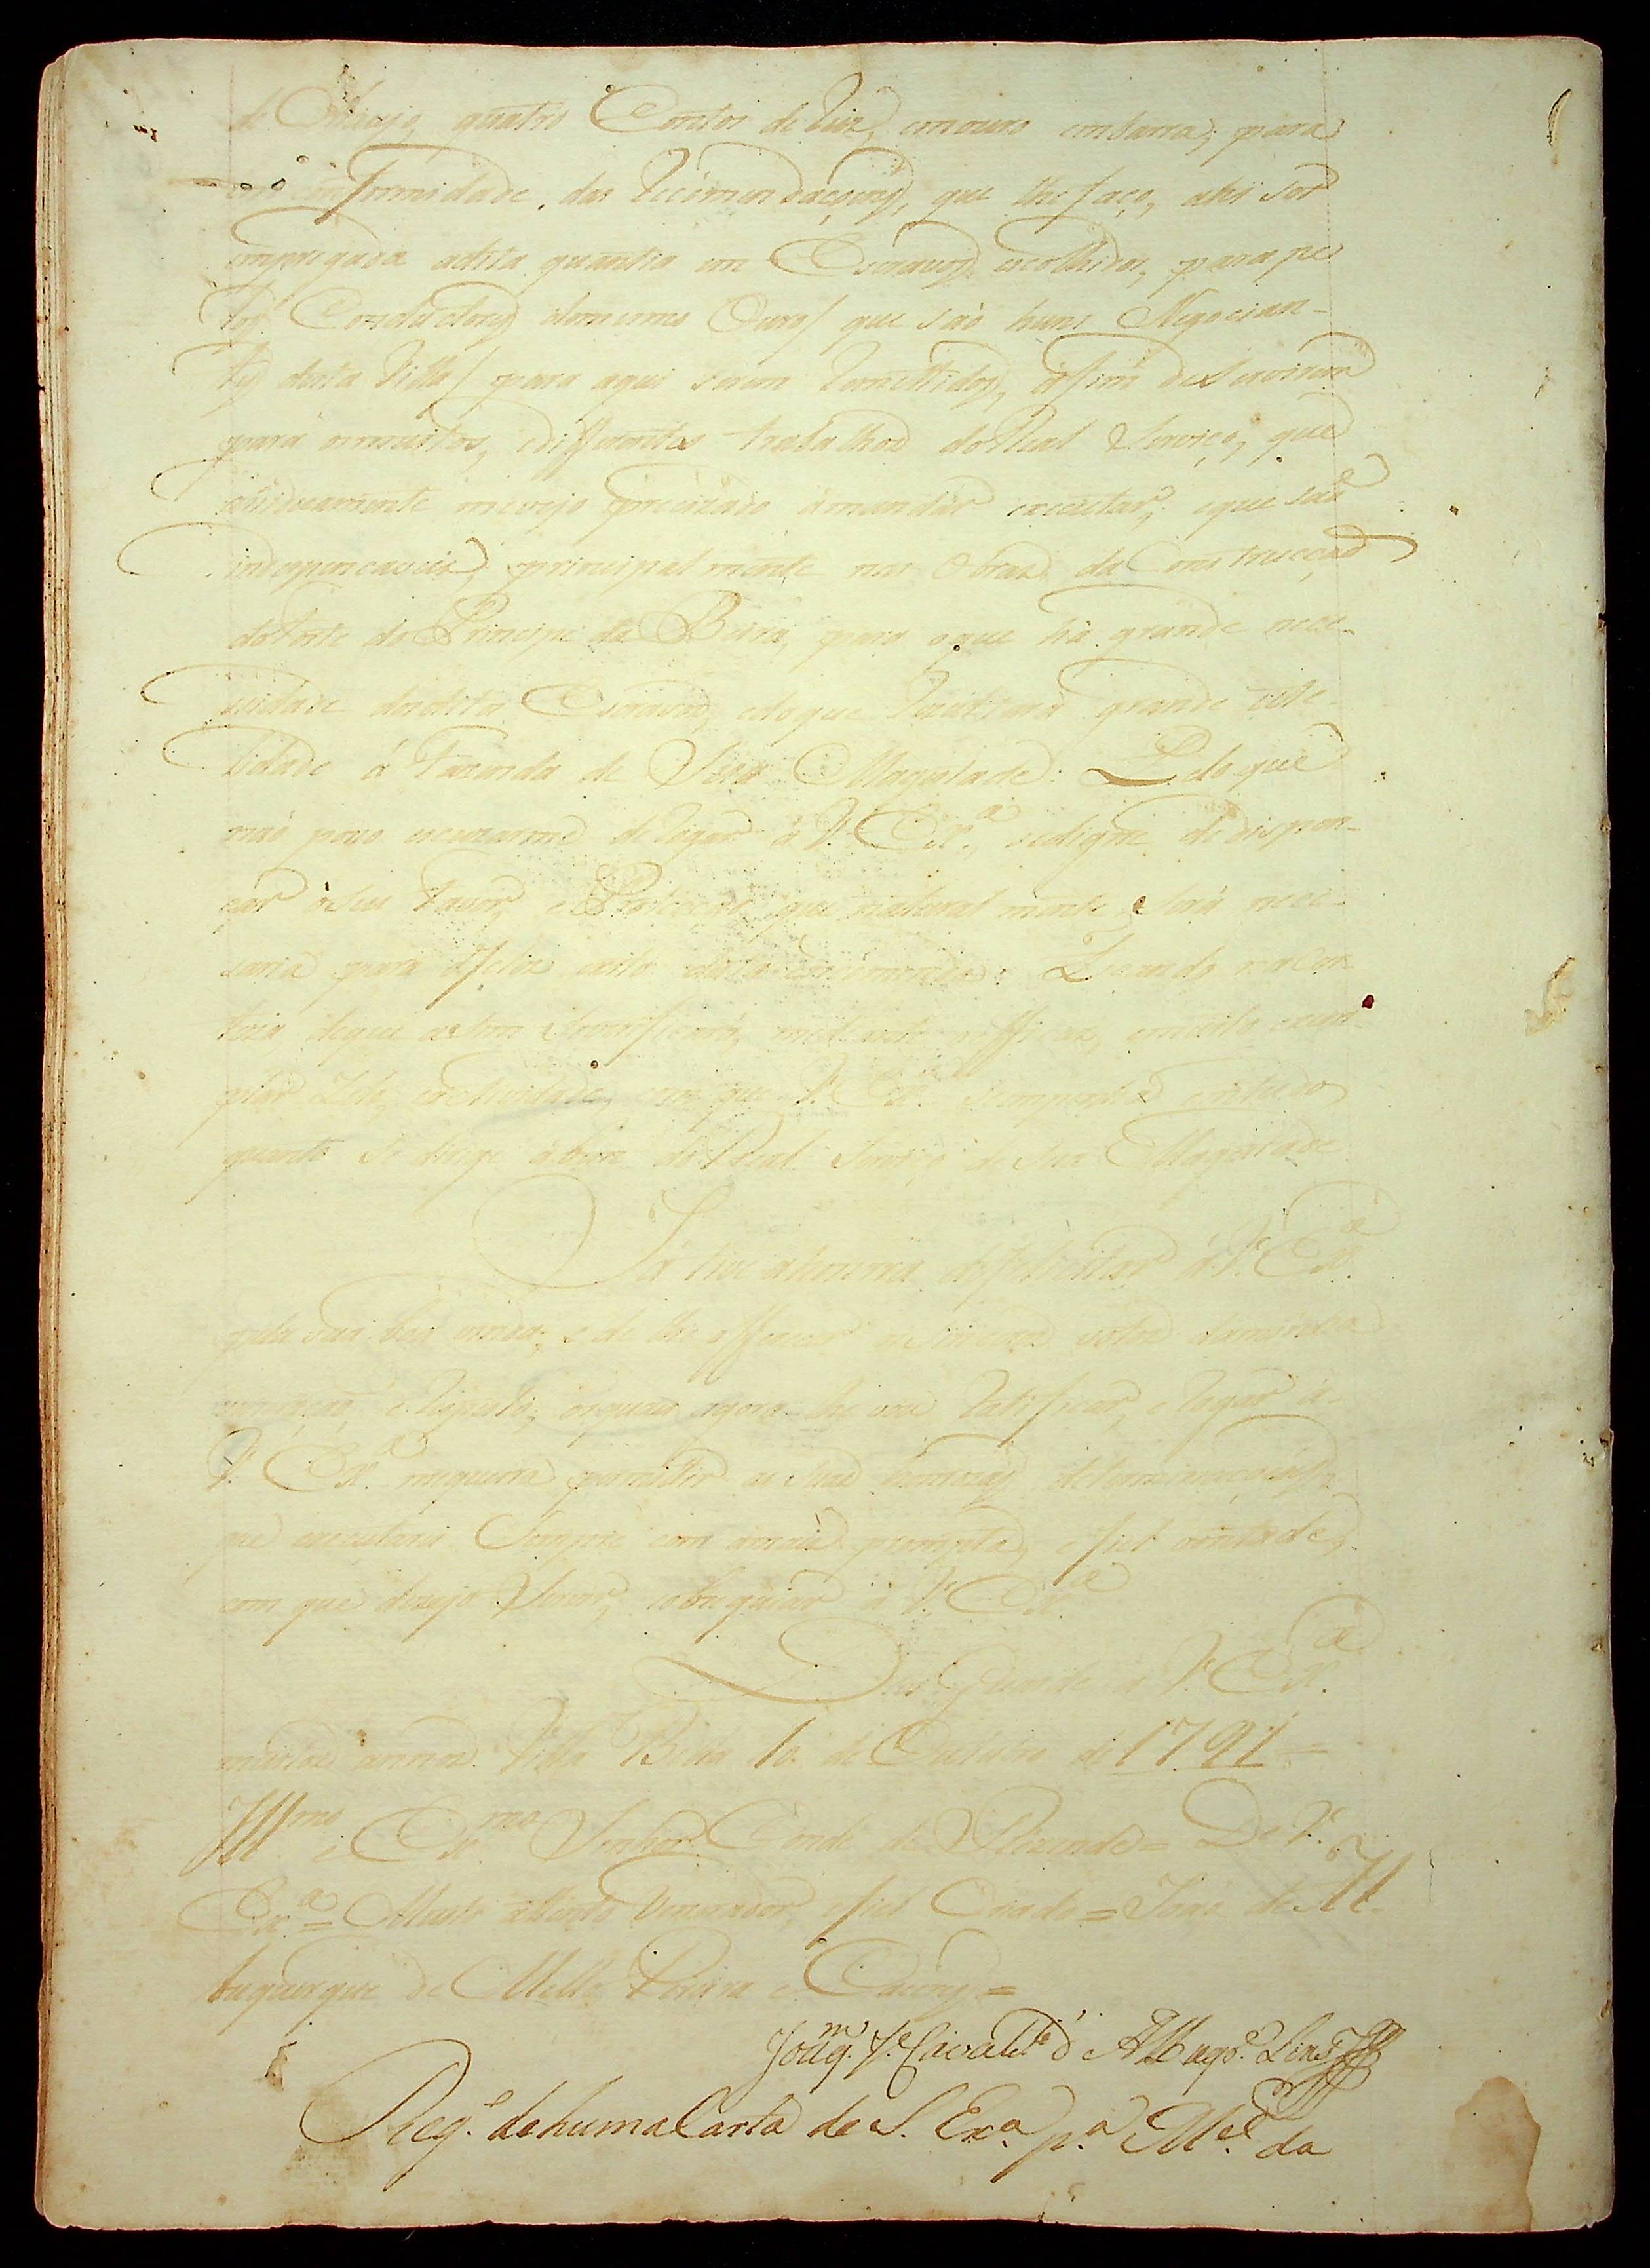 de Araujo, quatro Contos de Reiz, em ouro em barra, para
conformidade, das Recomendaçoens, que lhe faço, ahi ser
empregada adita quantia em Escravos escolhidos, para pe
los Conductores domesmo Ouro / que são huns Negocian-
tes desta Villa / para aqui serem Remettidos, afim deservirem
para os muitos, e differentes trabalhos do Real Serviço, que
me vejo precizado amandar executar, eque são
indespencaveis, principalmente nas Obras da Construcção
do Forte do Principe da Beira, para oque há grande nece-
ssidade dos ditos Escravos, e do que Rezultará grande uti-
lidade á Fazenda de Sua Magestade: Pelo que
não poso escuzarme de rogar a V. Exª., se digne de dispen-
çar o Seu Favor, e Protecçao que natural mente será nece-
saria para o feliz exito desta encomenda: Ficando na cer
teza, de que mediante o efficaz, 
plar Zelo, e actividade, com que V. Exª. em tudo
quanto se dirige a bem do Real Serviço de Sua Magestade
Já tive a honra de felicitar a V. Exª.
pela sua boa vinda; e de lhe offerecer os sinceros votos da minha
veneração, e respeito, os quaes agora lhe vou Ratificar, e rogar a
V. Exª. me queira permitir as Suas determinaçoens,
que executarei Sempre com amais prompta, e fiel vontade,
com que dezejo Servir, e obzequiar a V. Exª.
Deos Guarde a V. Exª.
muitos annos. Villa Bela 10 de Outubro de 1791 =
Illmo. e Exmo. Senhor Conde de Rezende = De V.
Exª. = Muito attento Venerador, e fiel Criado = João de Al-
buquerque de Mello Pereira e Caceres =
Joaqm. Je. Cavalcte. d'Albuqe. Lins
Rego. de huma Carta de S. Exa. pa. Mel. da